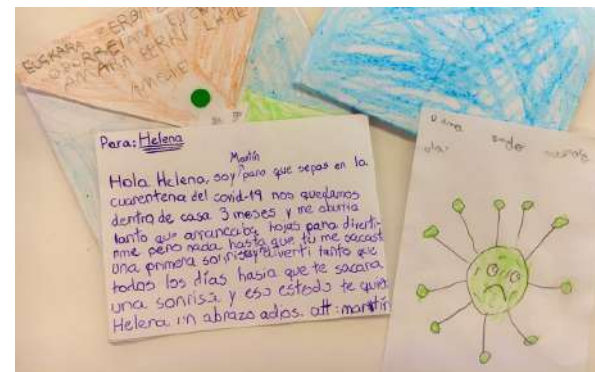 EUSKARA
AMAMA
Para: Helena
Martín
Hola Helena, soy para que sepas en la
cuarentena del covid-19 nos quedamos
dentro de casa 3 meses y me aburria
tanto que arrancaba hojas para diverti-
rme pero nada hasta que tu me sacast
una primera sonrisa y diverti tanto que
todos los días hasia que te sacara
una sonrisa y eso estodo te quier
Helena un abrazo adjos. att: martín
ander